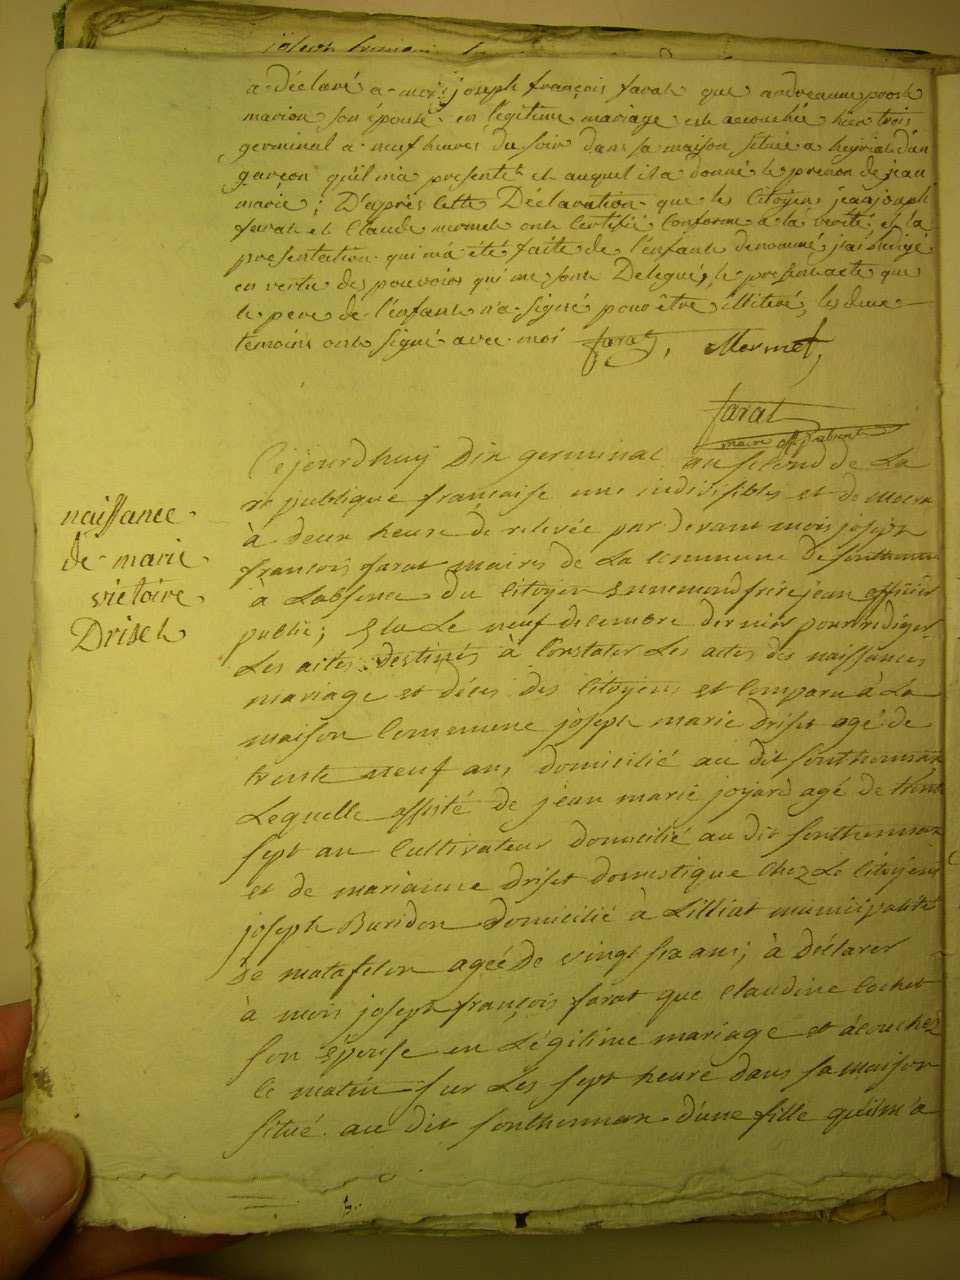 a déclaré a moi joseph françois farat que andréanne
marion son épouse en légitime mariage est acouchée hier trois
germinal a neuf heures du soir dans sa maison située a heyriat d'un
garçon qu'il m'a presenté et auquel il a donné le prenon de jean
marie; D'après cette Déclaration que les Citoyens jean joseph
farat et Claude mermet ont Certifié Conforme a la verité et la
présentation qui m'a été faite de l'enfant denommé j'ai rédigé
en vertu des pouvoirs qui me sont Delegués, le présent acte que
le pere de l'enfant n'a signé pour être illiteré, les deux
temoins ont signé avec moi farat, Mermet,
farat
maire
Cejourdhuy Dix germinal au second de La
republique francaise une indivisibles et
à deux heure de relevée par devant mois joseph
francois farat maires de La commune de sonthonnax
à Labsence du Citoyen Ennemond frérejean officier
public; Elu Le neuf decembre dernier pour rediger
Les actes Destinés à Constater Les actes des naissances
mariage et décès des Citoyens et Comparu à La
maison Commune joseph marie driset agé de
trente neuf ans domicilié au dit sonthonnax
Lequelle assisté de jean marie joyard agé de trente
sept an Cultivateur domicilié au dit sonthonnax
et de marianne driset domestique chez Le Citoyens
joseph Buridon domicilié à Lilliat municipalité
de matafelon agéé de vingt six ans; à déclarer
à mois joseph françois farat que Claudine Cochet
son Epouse en Légitime mariage et acouchez
ce matin sur Les sept heure dans sa maison
situé au dit sonthonnax d'une fille qu'il m'a
naissance
de marie
victoire
Driset